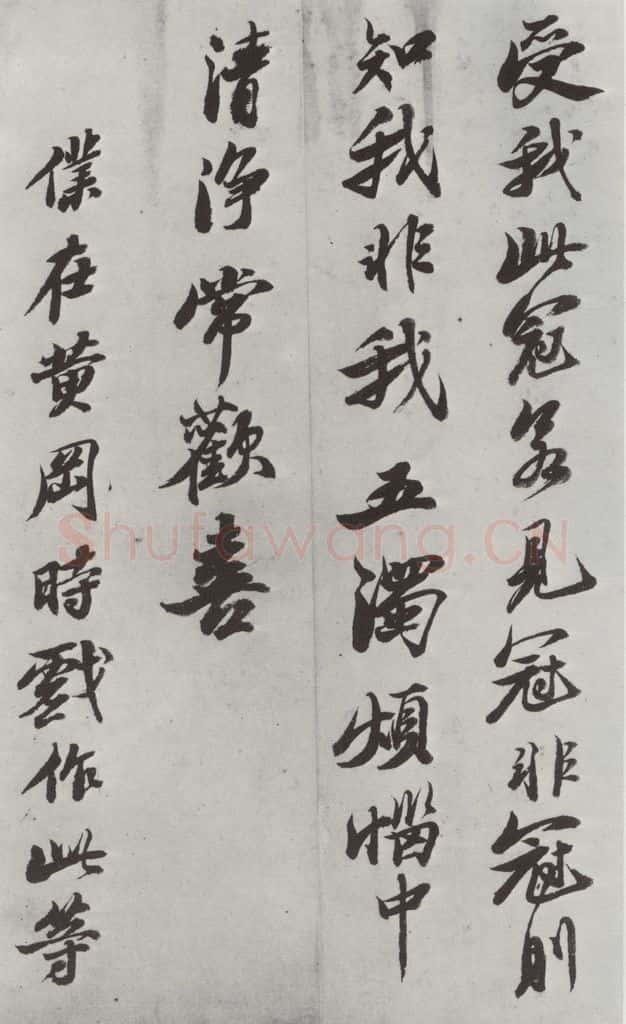 受我此冠若見冠非冠則
知我非我五濁煩惱中
清淨常歡喜
僕在黄岡時戲作此等
Shufawang.CN